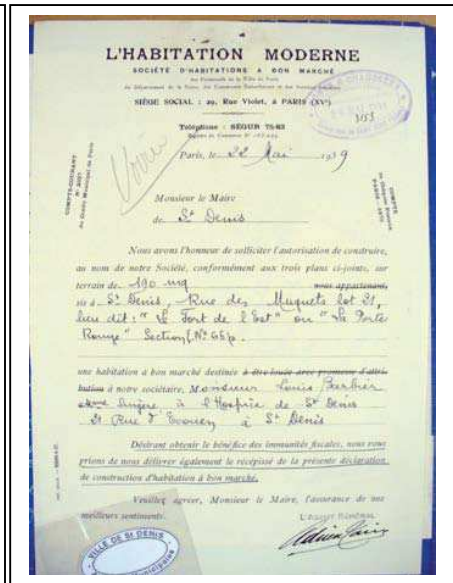 L'HABITATION MODERNE
SOCIÉTÉ D'HABITATIONS A BON MARCHÉ
SIÈGE SOCIAL : 29, Rue Violet, à PARIS (XVe)
Téléphone : SÉGUR 75-83
Voirie
3153
Paris, le 22 Mai 1939
COMPTE-COURANT
Monsieur le Maire
de St Denis
Nous avons l'honneur de solliciter l'autorisation de construire,
au nom de notre Société, conformément aux trois plans ci-joints, sur
terrain de 190 mq nous appartenant,
sis à St Denis, Rue des Muguets lot 21,
lieu dit: "Le Fort de l'Est" ou "La Porte
Rouge" Section
une habitation à bon marché destinée à être louée avec promesse d'attri-
bution à notre sociétaire, Monsieur Louis Barbier
à l'Hospice de St Denis
21 Rue d'Ecouen à St Denis
Désirant obtenir le bénéfice des immunités fiscales, nous vous
prions de nous délivrer également le récépissé de la présente déclaration
de construction d'habitation à bon marché.
Veuillez agréer, Monsieur le Maire, l'assurance de nos
meilleurs sentiments.
L'AGENT GÉNÉRAL
VILLE DE St DENIS